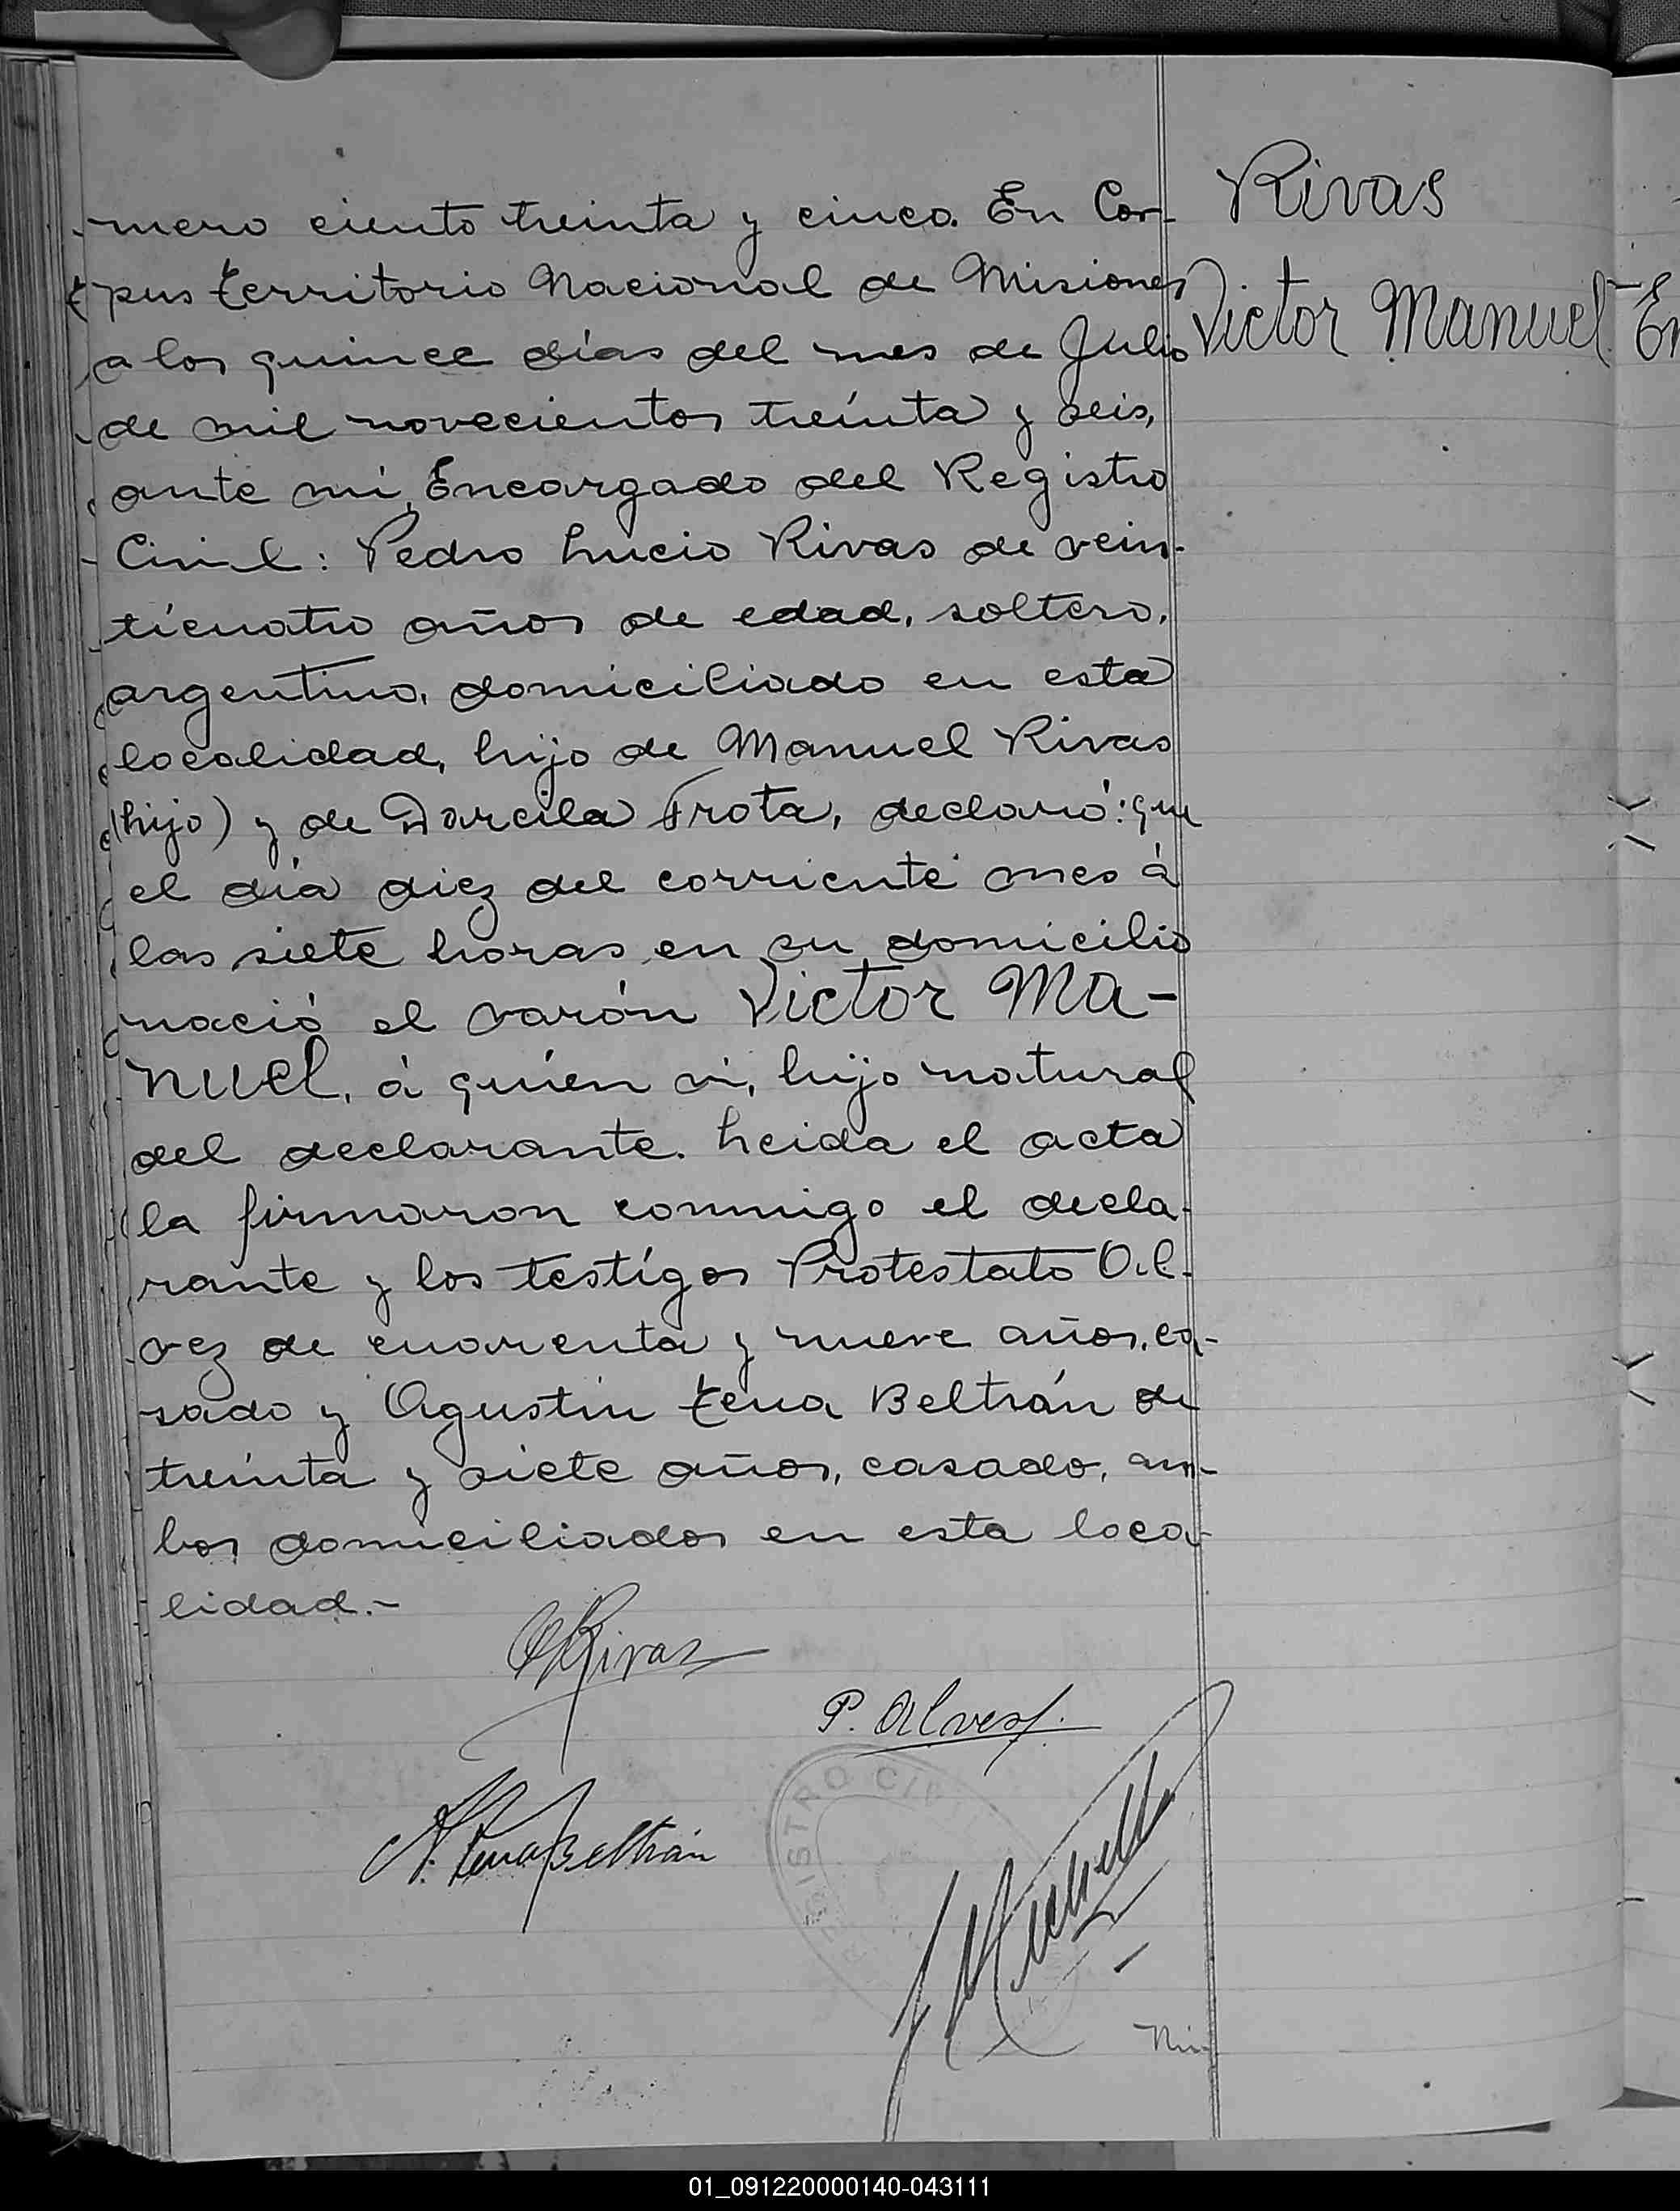 mero ciento treinta y cinco. En Cor-
pus territorio Nacional de Misiones
a los quince días del mes de Julio
de mil novecientos treinta y seis,
ante mi, Encargado del Registro
Civil: Pedro Lucio Rivas de vein-
ticuatro años de edad, soltero,
argentino, domiciliado en esta
localidad, hijo de Manuel Rivas
(hijo) y de Darcila Frota, declaró: que
el día diez del corriente mes á
las siete horas en su domicilio
nació el varón Victor Ma-
nuel, á quién vi, hijo natural
del declarante. Leida el acta
la firmaron conmigo el decla-
rante y los testigos Protestato Al-
vez de cuarenta y nueve años, ca-
sado y Agustin Tena Beltrán de
treinta y siete años, casado, am-
bos domiciliados en esta loca-
lidad.-
Rivas
Victor Manuel
Rivas
P. Alvez
A. Tena Beltrán
REGISTRO CIVIL
01_091220000140-043111